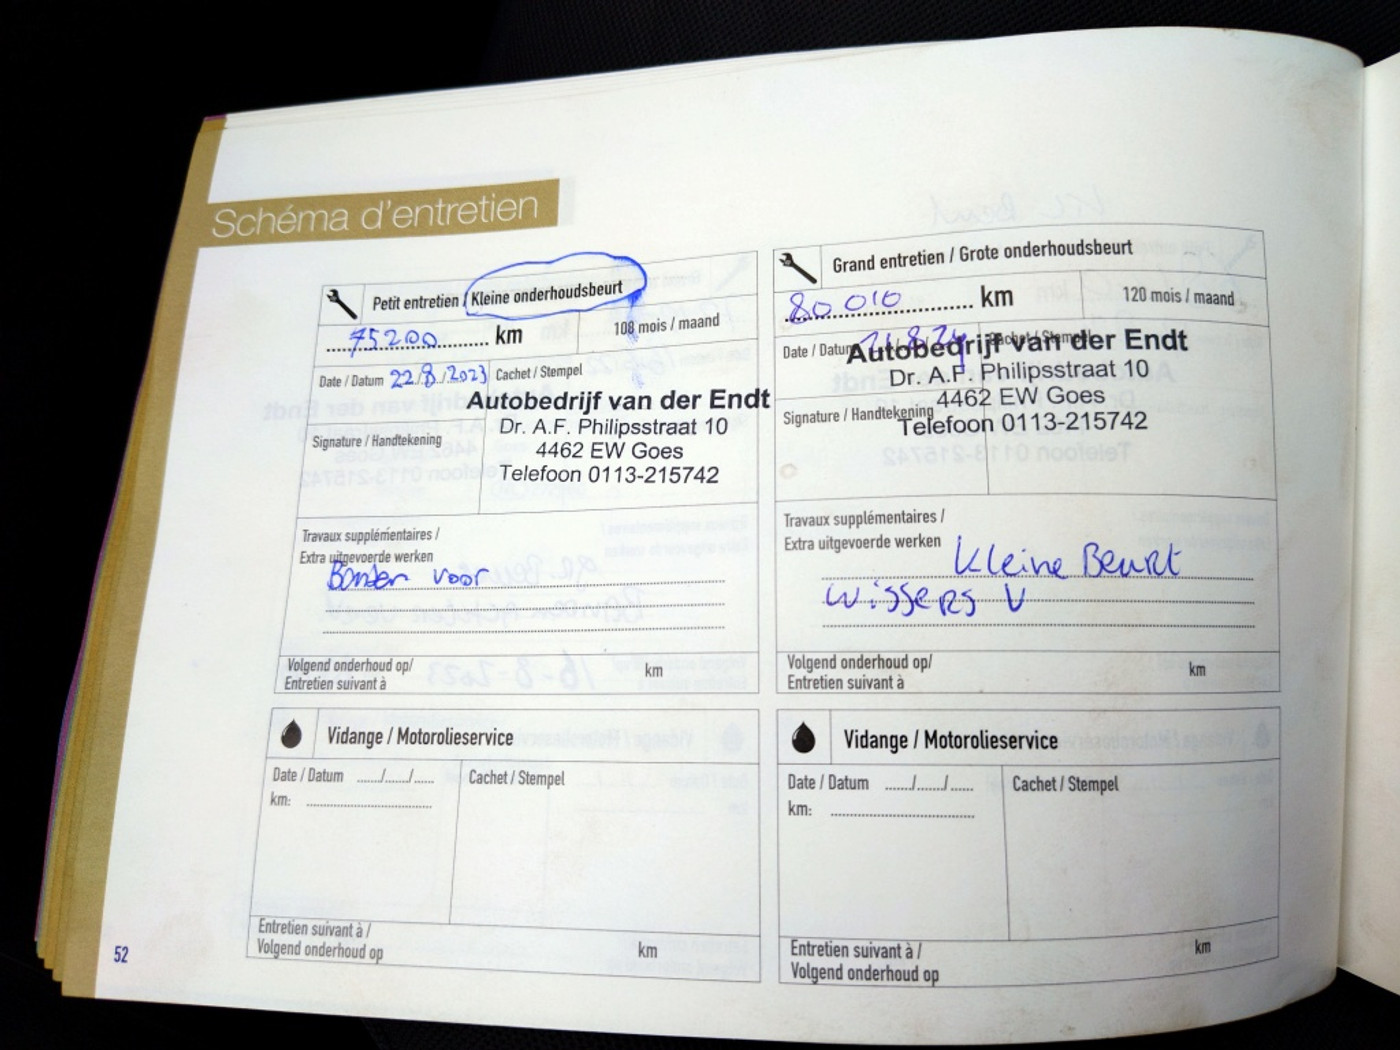 Schéma d'entretien
Petit entretien / Kleine onderhoudsbeurt
75200 km
108 mois / maand
Date / Datum 22/8/2023
Cachet / Stempel
Autobedrijf van der Endt
Dr. A.F. Philipsstraat 10
4462 EW Goes
Telefoon 0113-215742
Signature / Handtekening
Travaux supplémentaires /
Extra uitgevoerde werken
Banden voor
Volgend onderhoud op/
Entretien suivant à
km
Grand entretien / Grote onderhoudsbeurt
80 010 km
120 mois / maand
Date / Datum
Cachet / Stempel
Autobedrijf van der Endt
Dr. A.F. Philipsstraat 10
4462 EW Goes
Telefoon 0113-215742
Signature / Handtekening
Travaux supplémentaires /
Extra uitgevoerde werken
Kleine Beurt
Wissers V
Volgend onderhoud op/
Entretien suivant à
km
Vidange / Motorolieservice
Date / Datum ....../....../......
Cachet / Stempel
km:
Entretien suivant à /
Volgend onderhoud op
km
Vidange / Motorolieservice
Date / Datum ....../....../......
Cachet / Stempel
km:
Entretien suivant à /
Volgend onderhoud op
km
52